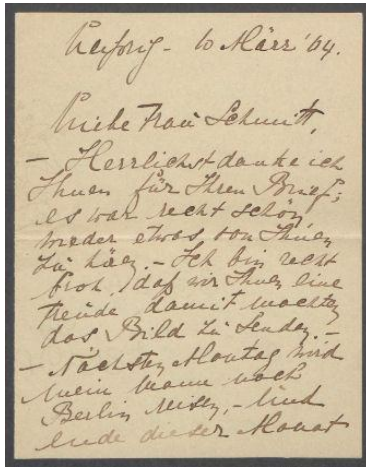 Leipzig - 10 März '04.
Liebe Frau Schmitt,
- Herrlichst danke ich
Ihnen für Ihren Brief;
es war recht schön,
wieder etwas von Ihnen
zu hören. - Ich bin recht
froh, daß wir Ihnen eine
Freude damit machten
das Bild zu senden. -
- Nächsten Montag wird
mein Mann nach
Berlin reisen, - und
ende dieser Monat